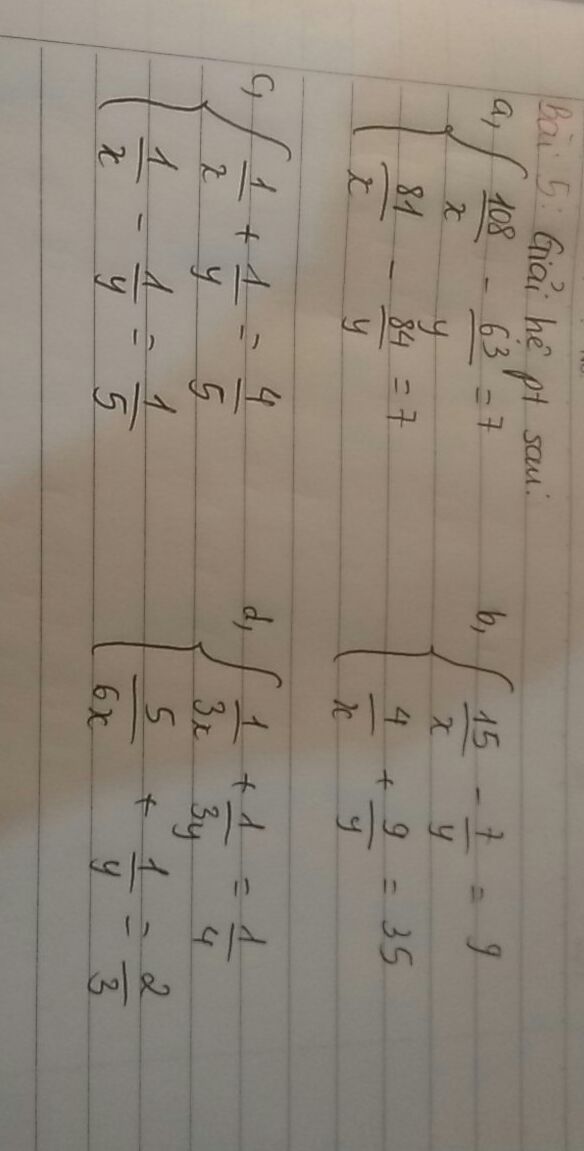 Bài 5: Giải hê pt sau:
a, { 108/x - 63/y = 7
81/x - 84/y = 7
b, { 15/x - 7/y = 9
4/x + 9/y = 35
c, { 1/x + 1/y = 4/5
1/x - 1/y = 1/5
d, { 1/3x + 1/3y = 1/4
5/6x + 1/y = 2/3